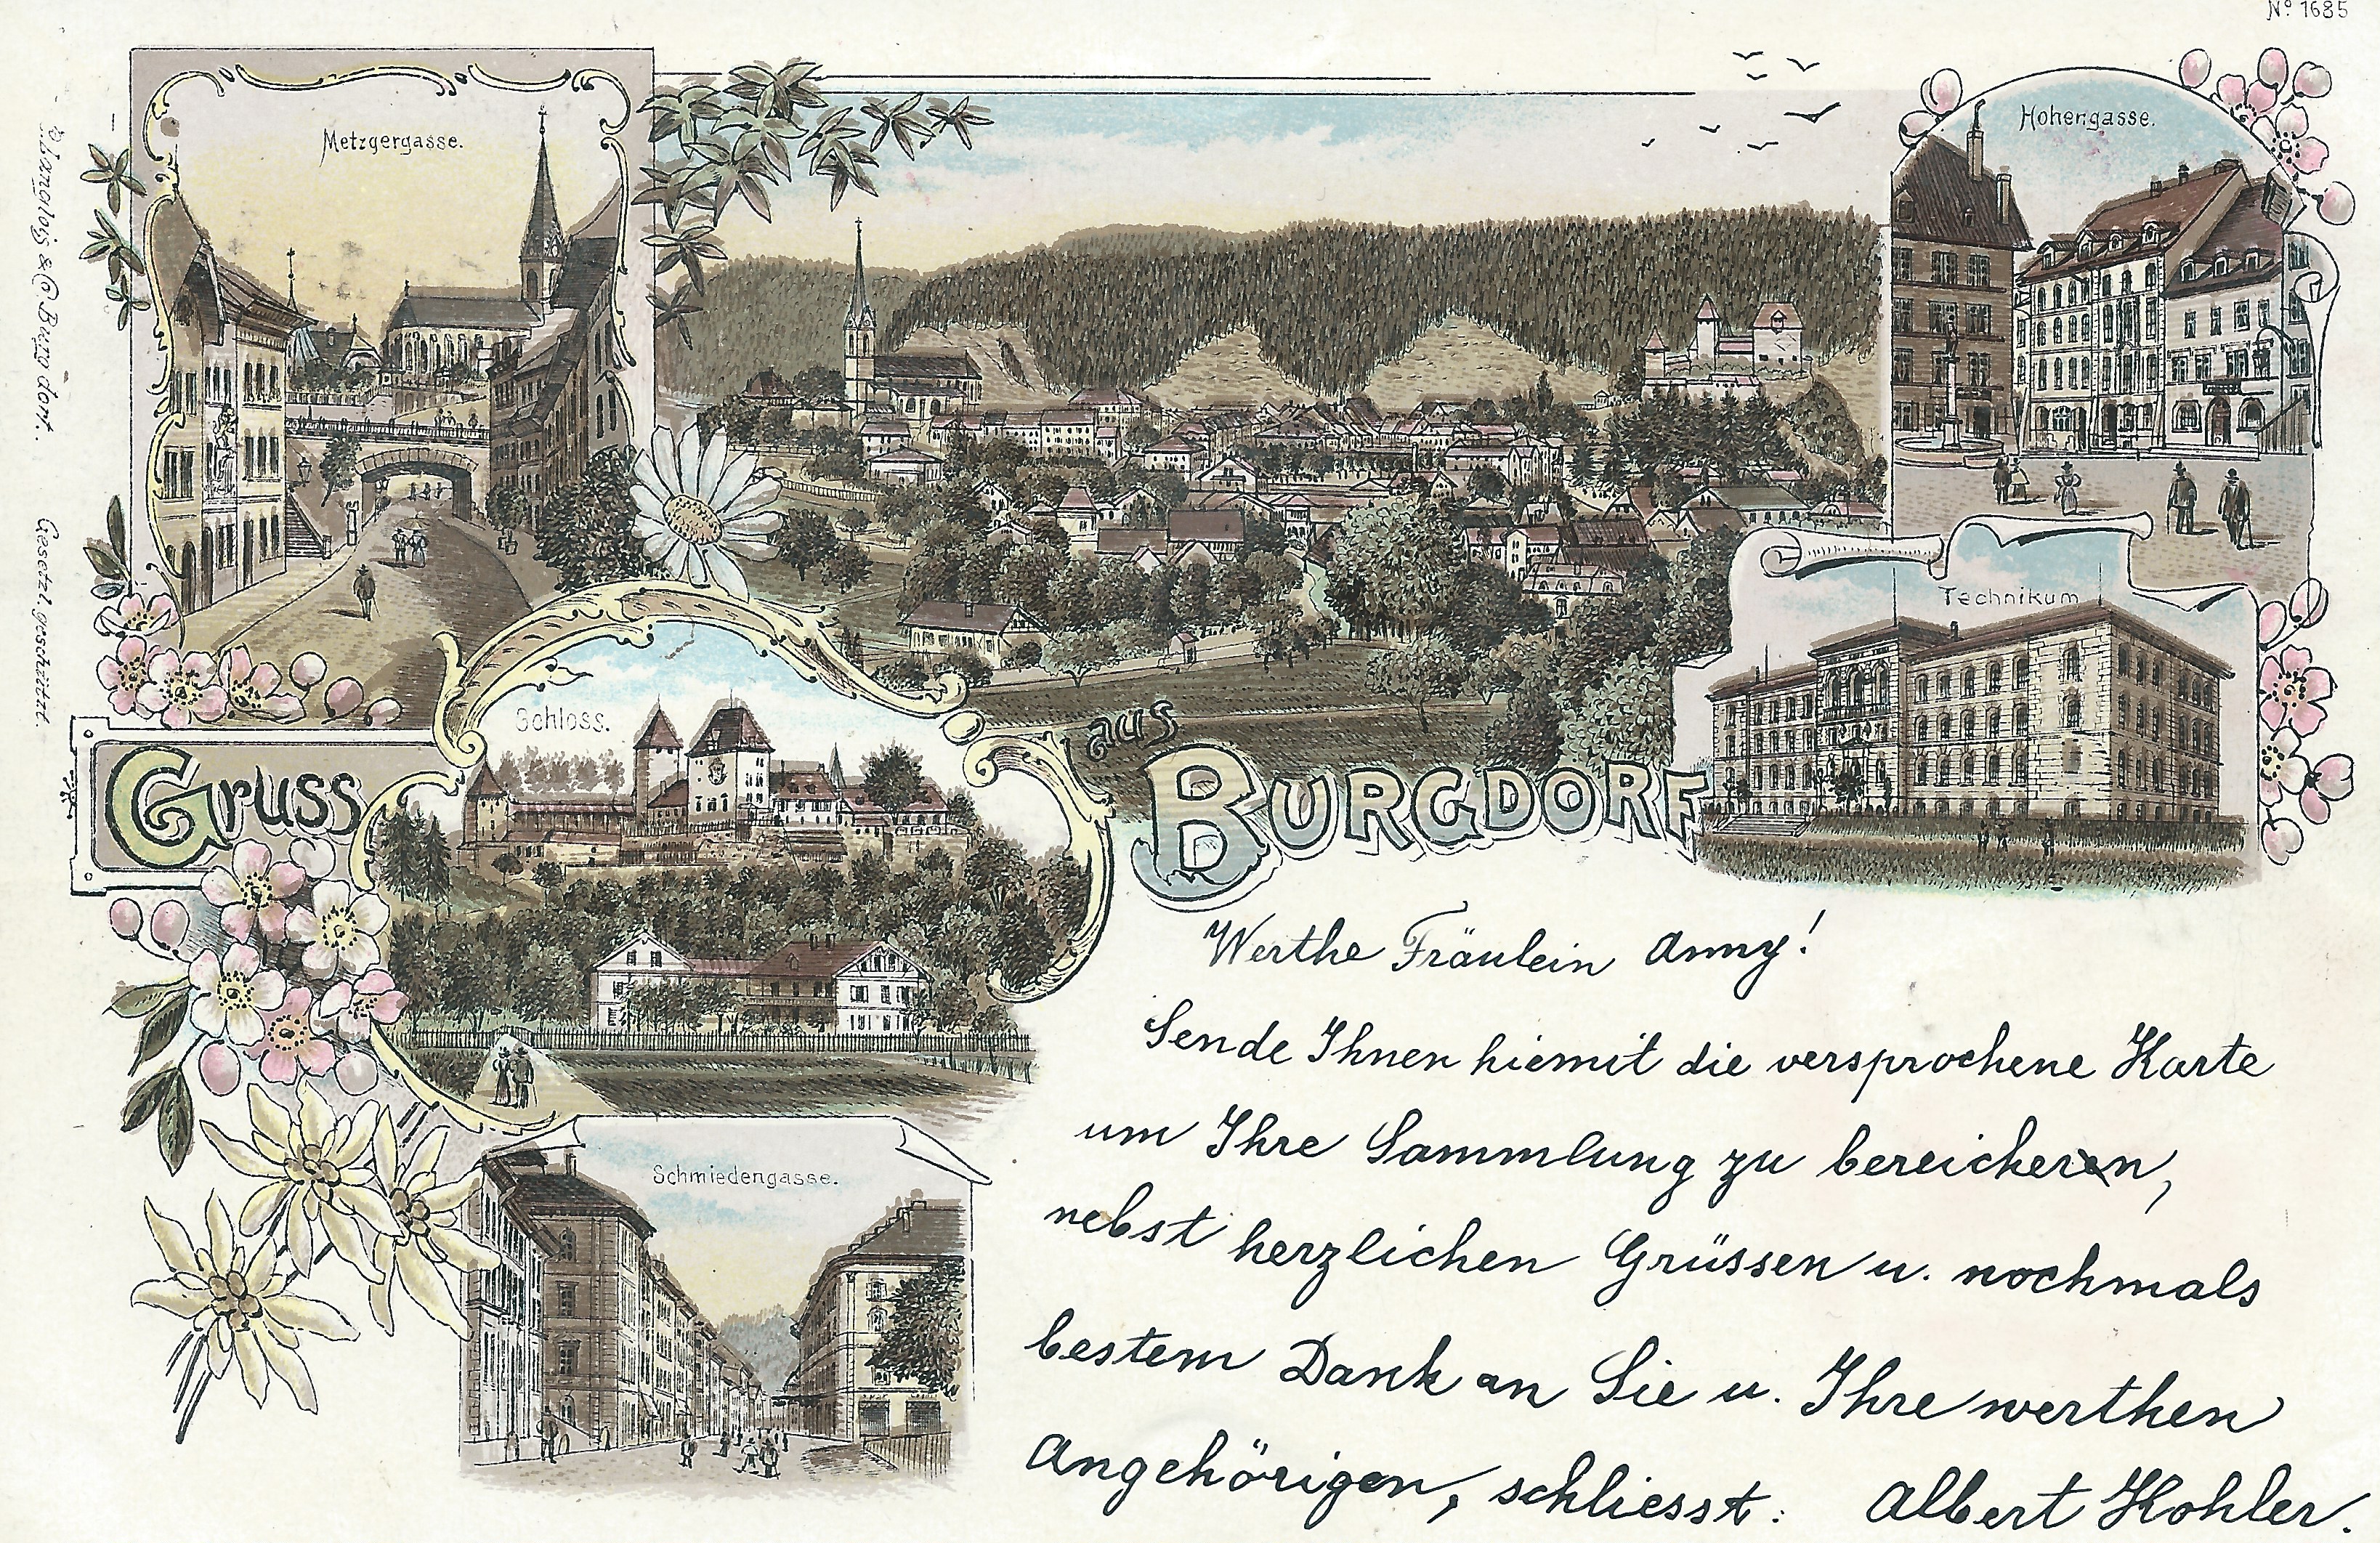 Nº 1685
Metzgergasse.
Hohengasse.
Technikum
Schloss.
Gruss
aus
BURGDORF
Schmiedengasse.
Werthe Fräulein Anny!
Sende Ihnen hiemit die versprochene Karte
um Ihre Sammlung zu bereichern,
nebst herzlichen Grüssen u. nochmals
bestem Dank an Sie u. Ihre werthen
Angehörigen, schliesst: Albert Kohler.
Langlois & Cº Burgdorf. Gesetzl. geschützt.